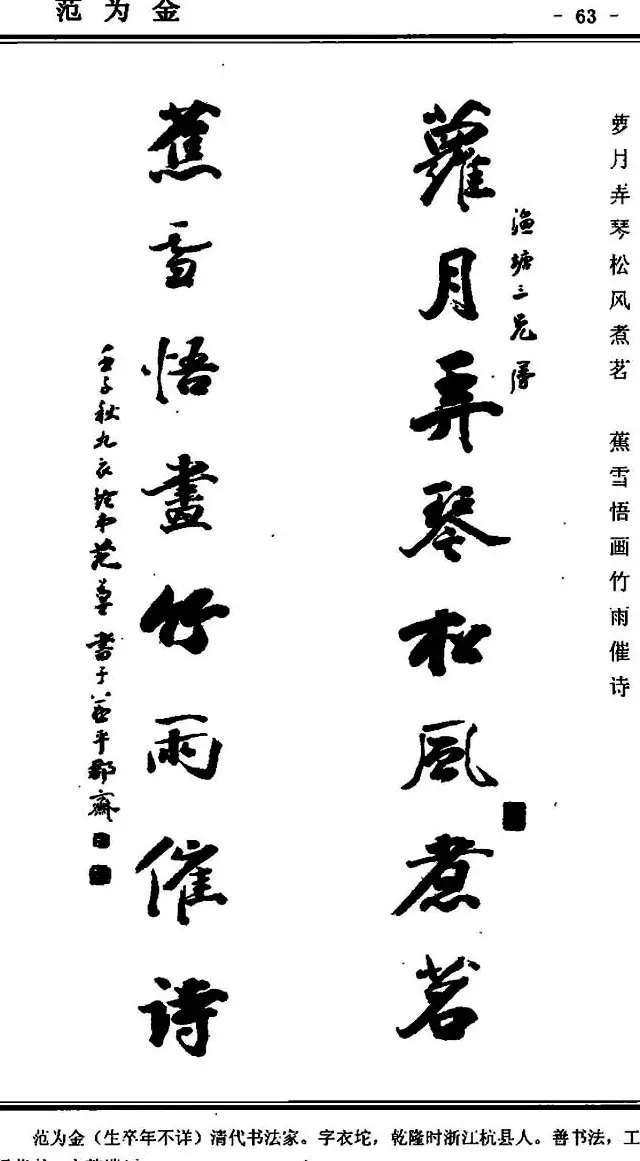 范为金
- 63 -
萝月弄琴松风煮茗 蕉雪悟画竹雨催诗
渔塘三兄
蘿月弄琴松風煮茗
蕉雪悟畫竹雨催詩
壬子秋九 范 書于 平郡齋
范为金（生卒年不详）清代书法家。字衣坨，乾隆时浙江杭县人。善书法，工